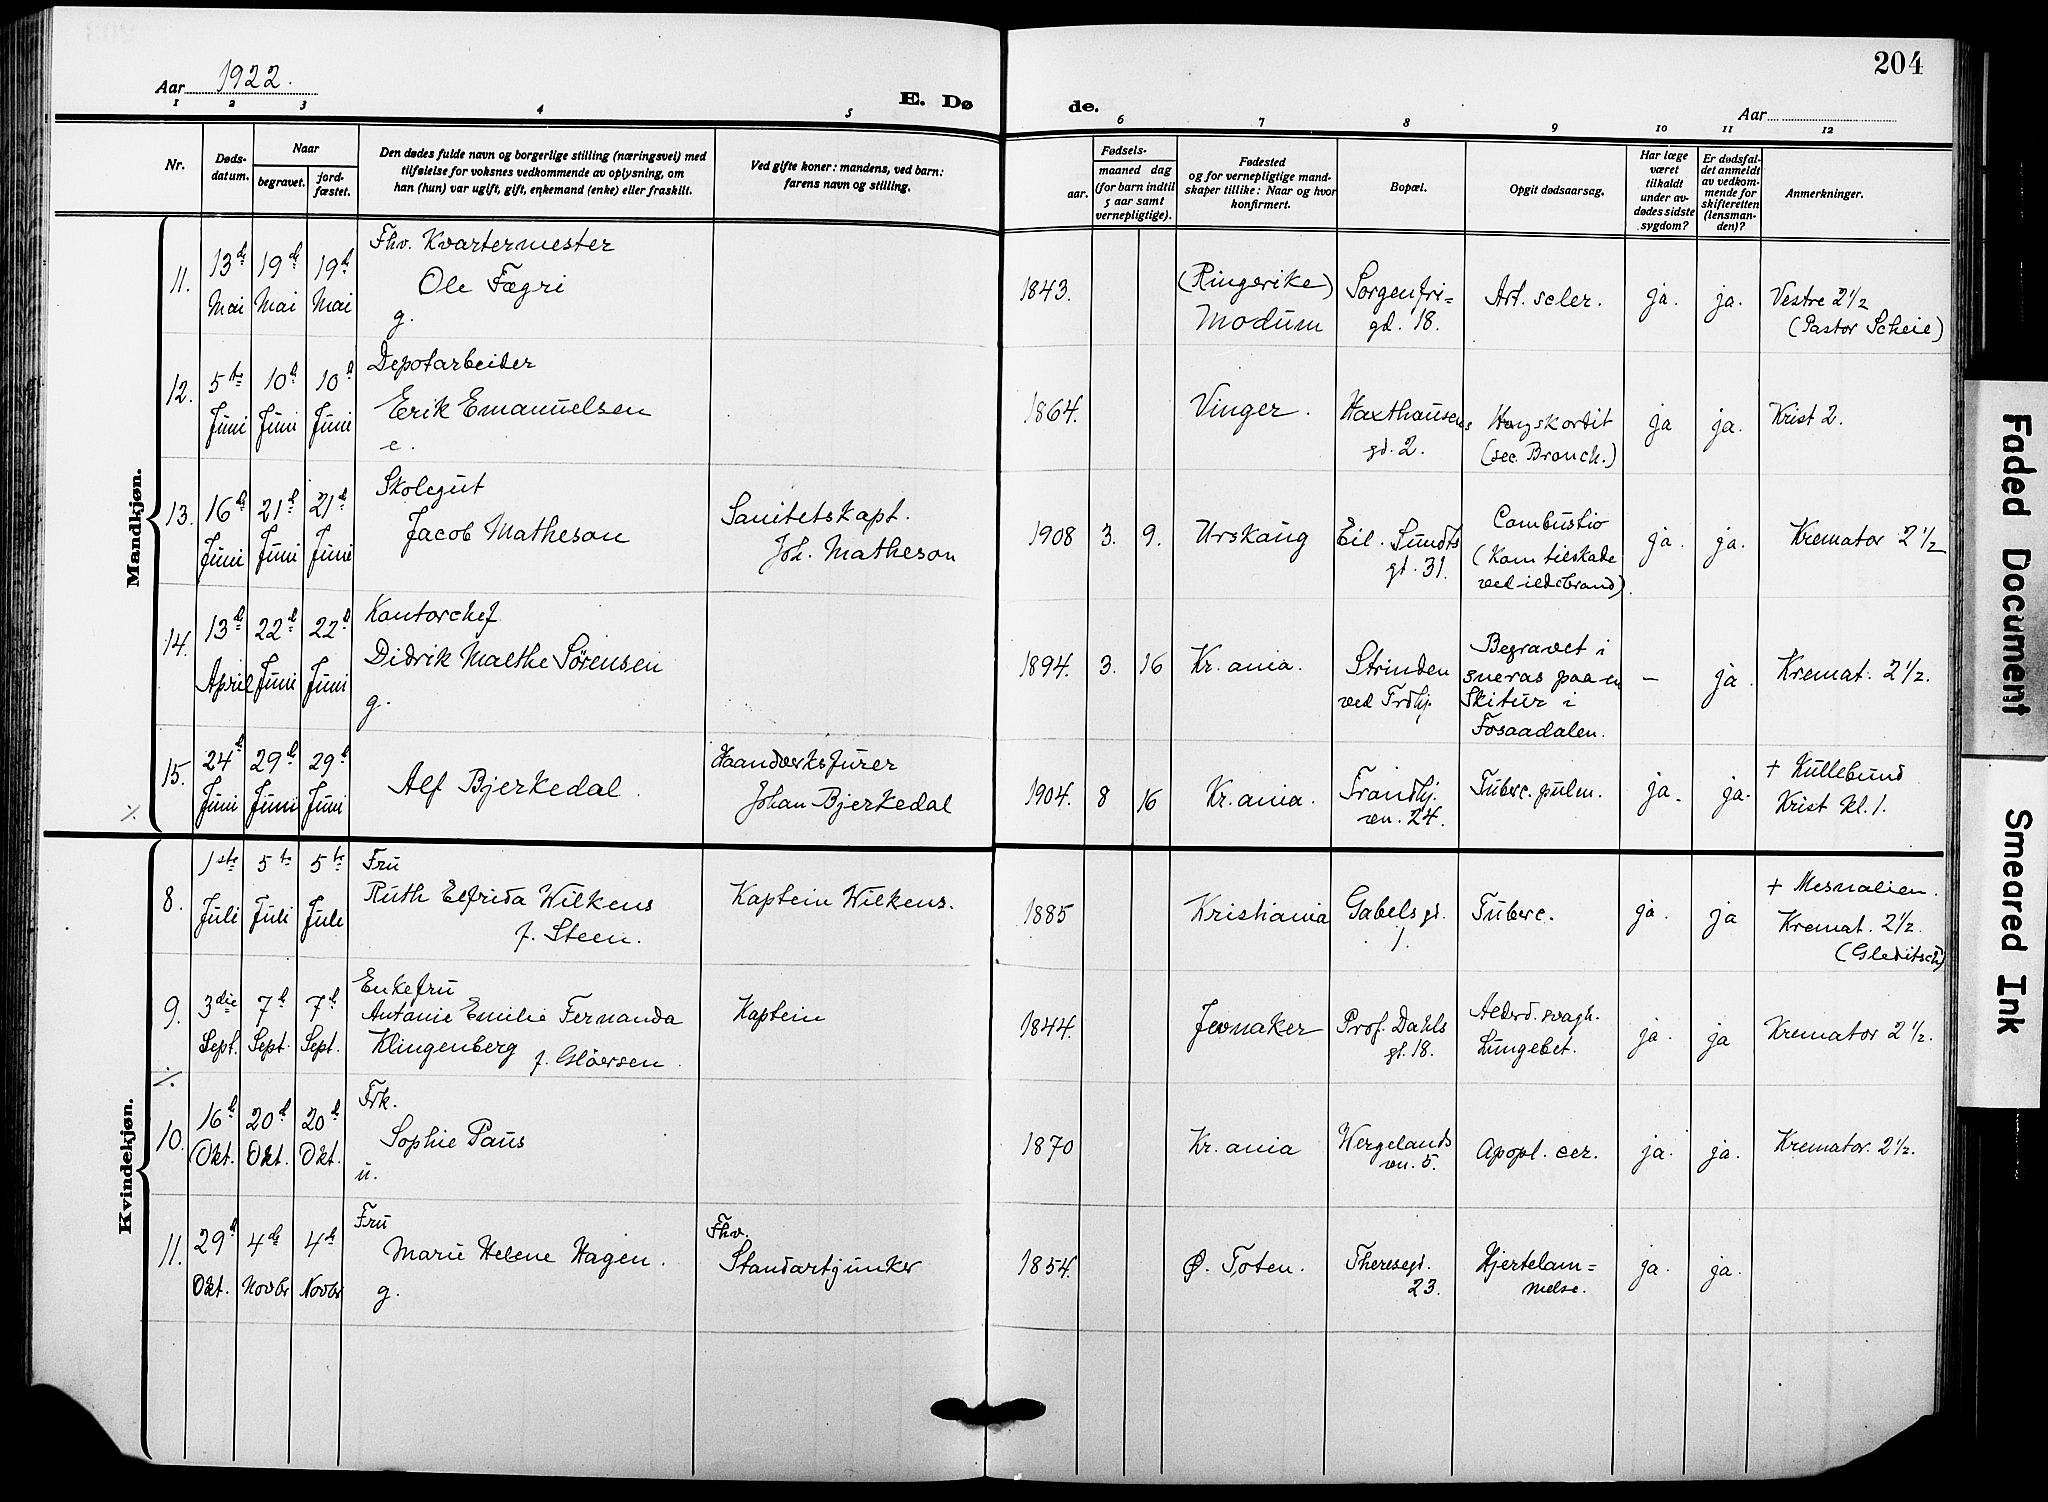 204
Aar 1922.
E. Døde.
Aar
1 2 3 4 5 6 7 8 9 10 11 12
Nr.
Døds-
datum.
Naar
begravet.
jord-
fæstet.
Den dødes fulde navn og borgerlige stilling (næringsvei) med
tilføielse for voksnes vedkommende av oplysning, om
han (hun) var ugift, gift, enkemand (enke) eller fraskilt.
Ved gifte koner: mandens, ved barn:
farens navn og stilling.
Fødsels-
aar.
maaned dag
(for barn indtil
5 aar samt
vernepligtige).
Fødested
og for vernepligtige mand-
skaper tillike: Naar og hvor
konfirmert.
Bopæl.
Opgit dødsaarsag.
Har læge
været
tilkaldt
under av-
dødes sidste
sygdom?
Er dødsfal-
det anmeldt
av vedkom-
mende for
skifteretten
(lensman-
den)?
Anmerkninger.
Mandkjøn.
11.
13de
Mai
19de
Mai
19de
Mai
Fhv. Kvartermester
Ole Fægri
g.
1843.
(Ringerike)
Modum
Sorgenfri=
gd. 18.
Art. scler.
ja.
ja.
Vestre 2 1/2
(Pastor Scheie)
12.
5te
Juni
10d
Juni
10d
Juni
Depotarbeider
Erik Emanuelsen
e.
1864.
Vinger.
Haxthausens
gd. 2.
(sec. Bronch.)
ja
ja.
Krist 2.
13.
16de
Juni
21d
Juni
21d
Juni
Skolegut
Jacob Matheson
Sanitetskapt.
Joh. Matheson
1908
3.
9.
Urskaug
Eil. Sundts
gt. 31.
Combustio
(Kom til skade
ved ildebrand).
ja.
ja.
Kremator 2 1/2
14.
13de
April
22d
Juni
22d
Juni
Kontorchef
Didrik Malthe Sørensen
g.
1894.
3.
16
Kr.ania.
Strinden
ved Trdhj.
Begravet i
sneras paa en
Skitur i
Fosaadalen.
–
ja.
Kremat. 2 1/2.
15.
24d
Juni
29d
Juni
29d
Juni
Alf Bjerkedal.
Haandverksfurer
Johan Bjerkedal
1904.
8
16
Kr.ania.
Trondhj.
vn. 24.
Tuberc. pulm.
ja.
ja.
+ Kullebund
Krist Kl. 1.
./.
Kvindekjøn.
8.
1ste
Juli
5te
Juli
5te
Juli
Fru
Ruth Elfrida Wilkens
f. Steen.
Kaptein Wilkens.
1885
Kristiania
Gabels gt.
1.
Tuberc.
ja.
ja
+ Mesnalien.
Kremat. 2 1/2.
(Gleditsch)
9.
3die
Sept.
7d
Sept.
7d
Sept.
Enkefru
Antonie Emilie Fernanda
Klingenberg f. Gløersen.
Kaptein
1844.
Jevnaker
Prof. Dahls
gt. 18.
Alderd. svagh.
Lungebet.
ja.
ja
Kremator 2 1/2.
./.
10.
16d
Okt.
20d
Okt.
20d
Okt.
Frk.
Sophie Paus
u.
1870
Kr.ania
Wergelands
vn. 5.
Apopl. cer.
ja.
ja.
Kremator. 2 1/2.
11.
29d
Okt.
4de
Novbr
4de
Novbr
Fru
Marie Helene Hagen.
g.
Fhv.
Standartjunker
1854.
Ø. Toten.
Theresegd.
23.
Hjertelam=
melse.
ja.
ja.
Faded Document
Smeared Ink